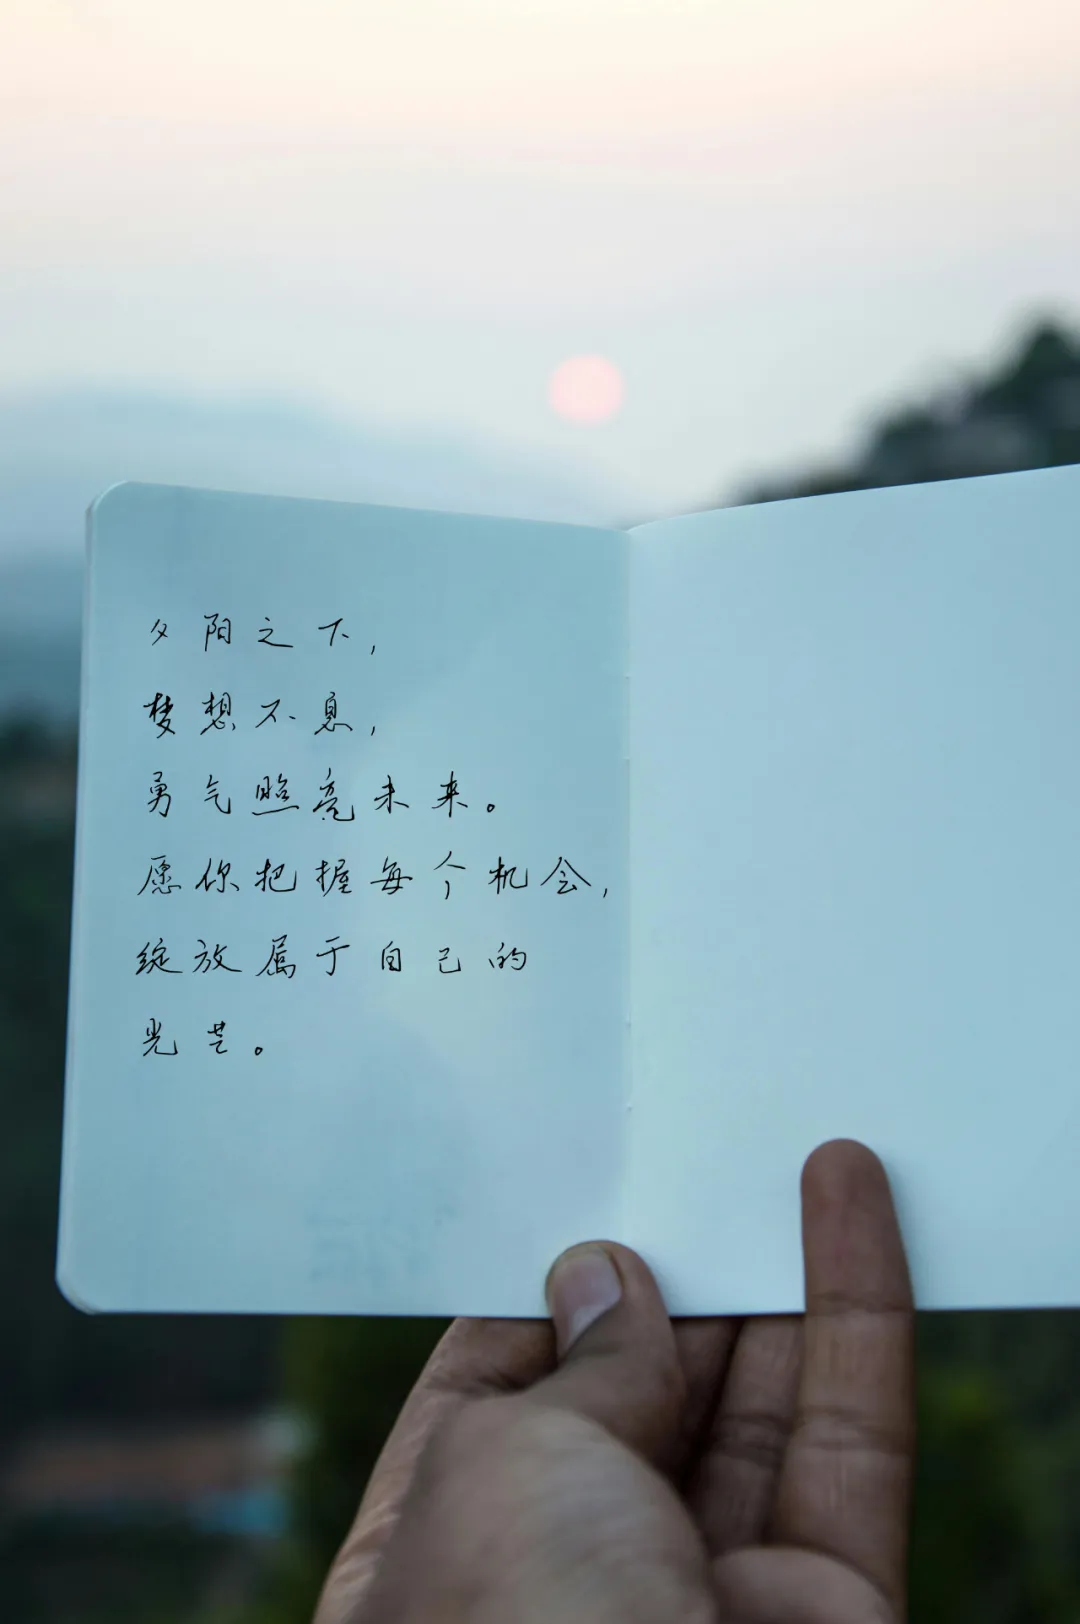 夕阳之下,
梦想不息,
勇气照亮未来。
愿你把握每个机会,
绽放属于自己的
光芒。